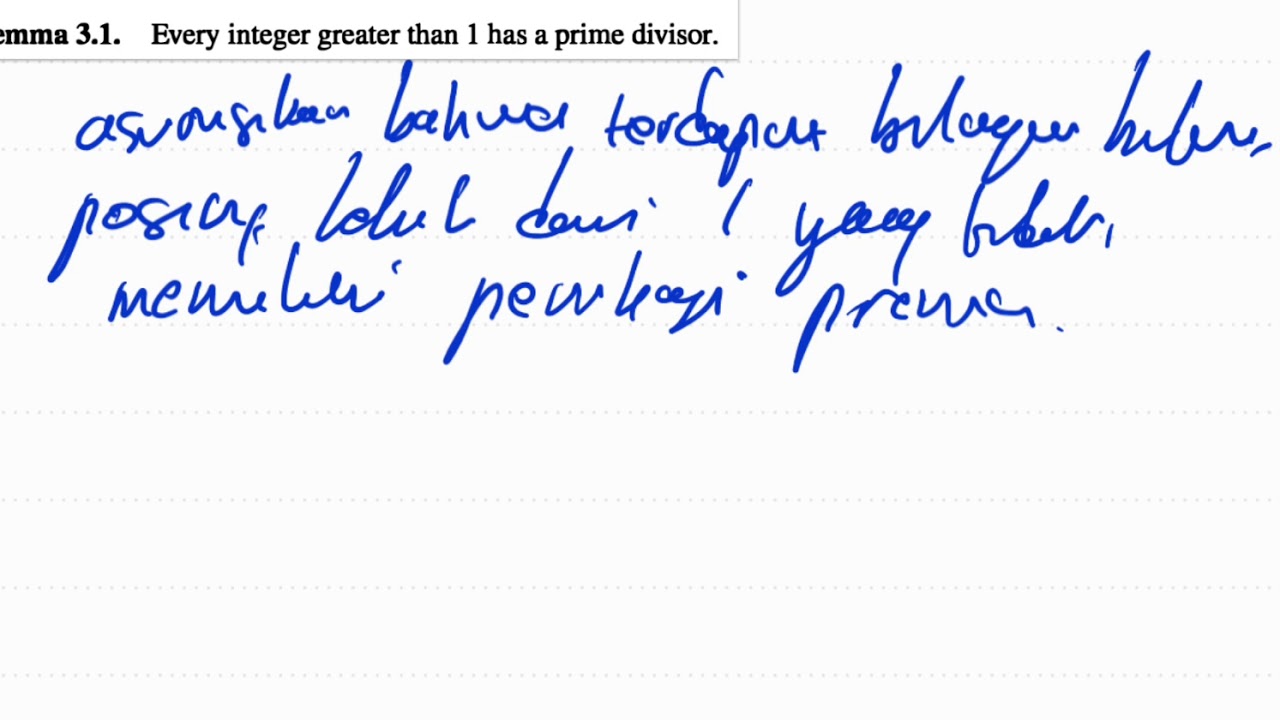 emma 3.1. Every integer greater than 1 has a prime divisor.
asumsikan bahwa terdapat bilangan bulat
positif lebih dari 1 yang tidak
memiliki pembagi prima.